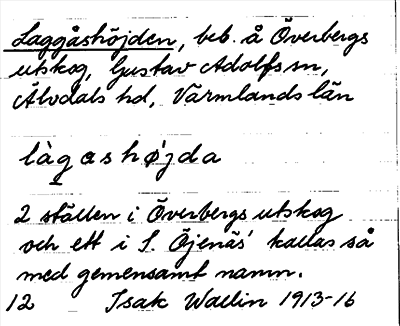 Laggåshöjden, beb. å Överbergs
utskog, Gustav Adolfs sn,
Älvdals hd, Värmlands län
làgashø̀jda
2 ställen i Överbergs utskog
och ett i S. Öjenäs' kallas så
med gemensamt namn.
12 Isak Wallin 1913-16